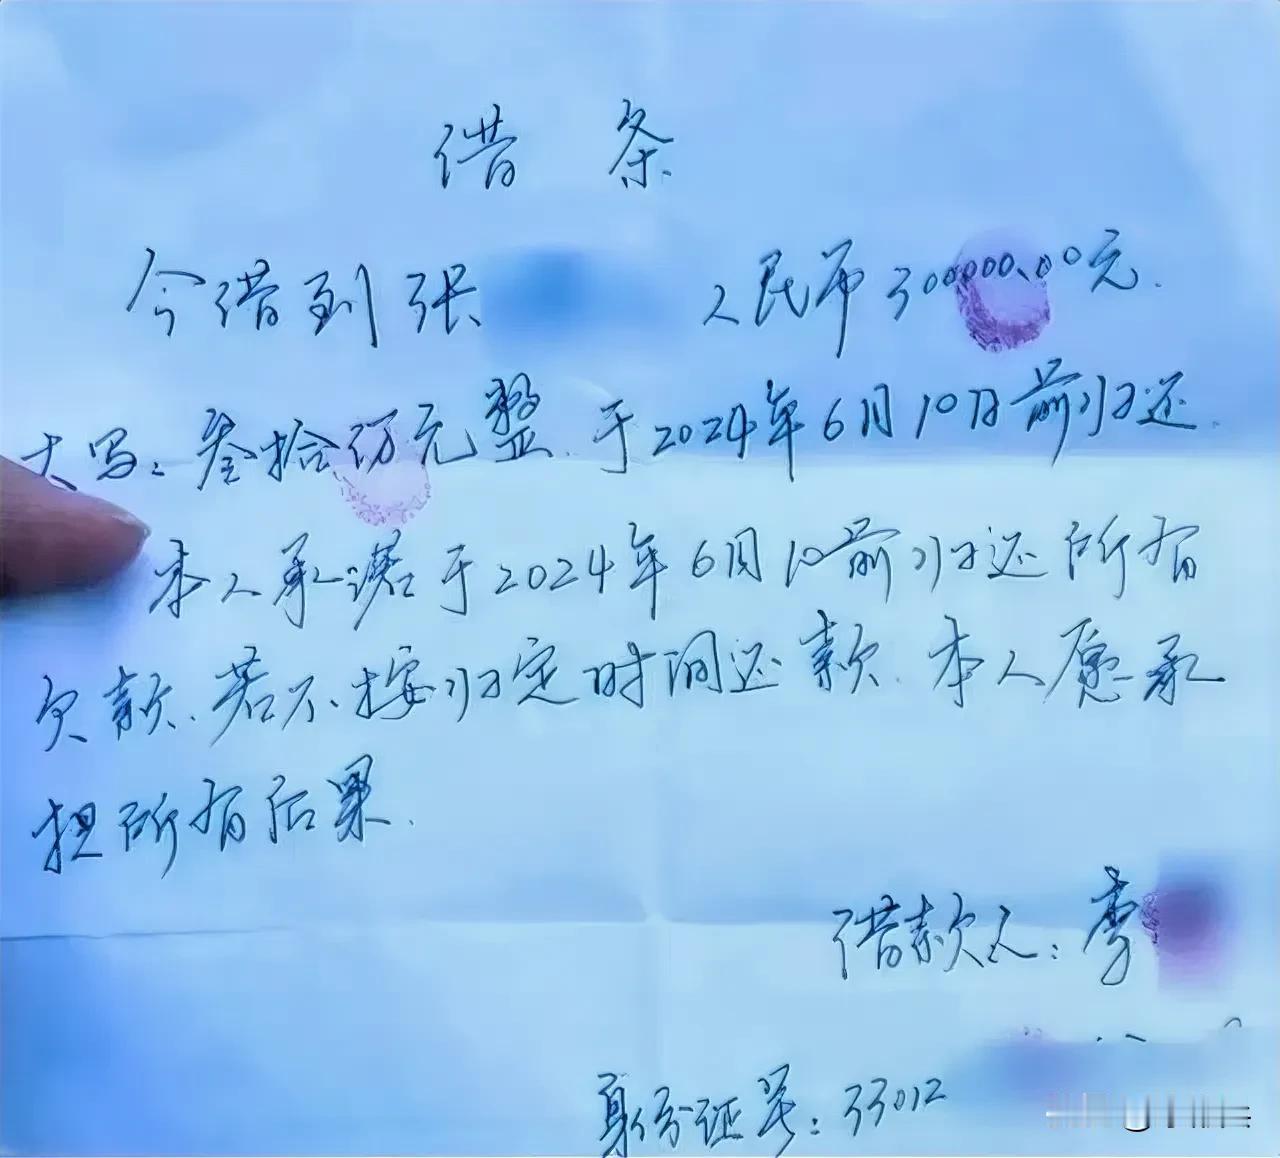 借 条
今借到张 人民币300000.00元.
大写：叁拾万元整.于2024年6月10日前归还.
本人承诺于2024年6月10前归还所有
欠款.若不按归定时间还款.本人愿承
担所有后果.
借款人：李
身份证号：33012